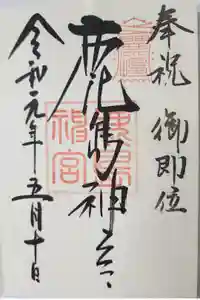 奉祝 御即位
鹿島神宮
令和元年五月十日
鹿島
神宮